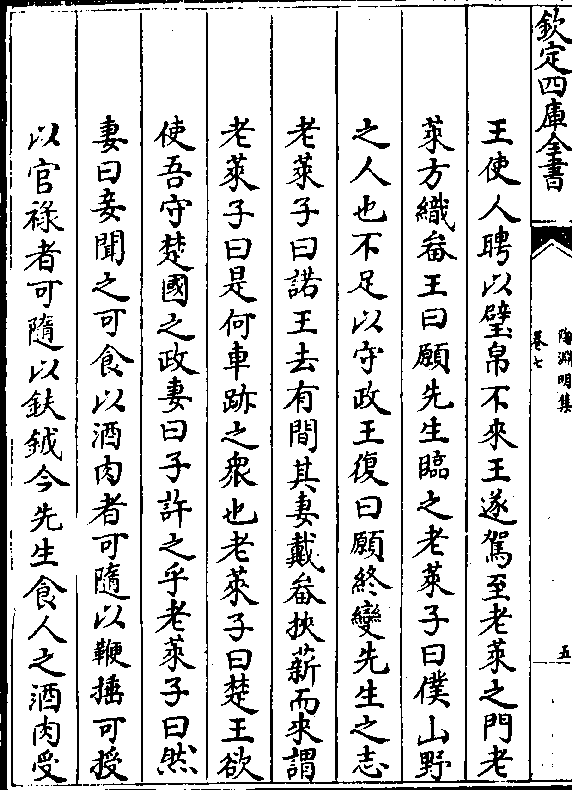 欽定四庫全書
陶淵明集
卷七
五
王使人聘以璧帛不來王遂駕至老萊之門老
萊方織畚王曰願先生臨之老萊子曰僕山野
之人也不足以守政王復曰願終變先生之志
老萊子曰諾王去有間其妻戴畚挾薪而來謂
老萊子曰是何車跡之衆也老萊子曰楚王欲
使吾守楚國之政妻曰子許之乎老萊子曰然
妻曰妾聞之可食以酒肉者可隨以鞭捶可授
以官祿者可隨以鈇鉞今先生食人之酒肉受